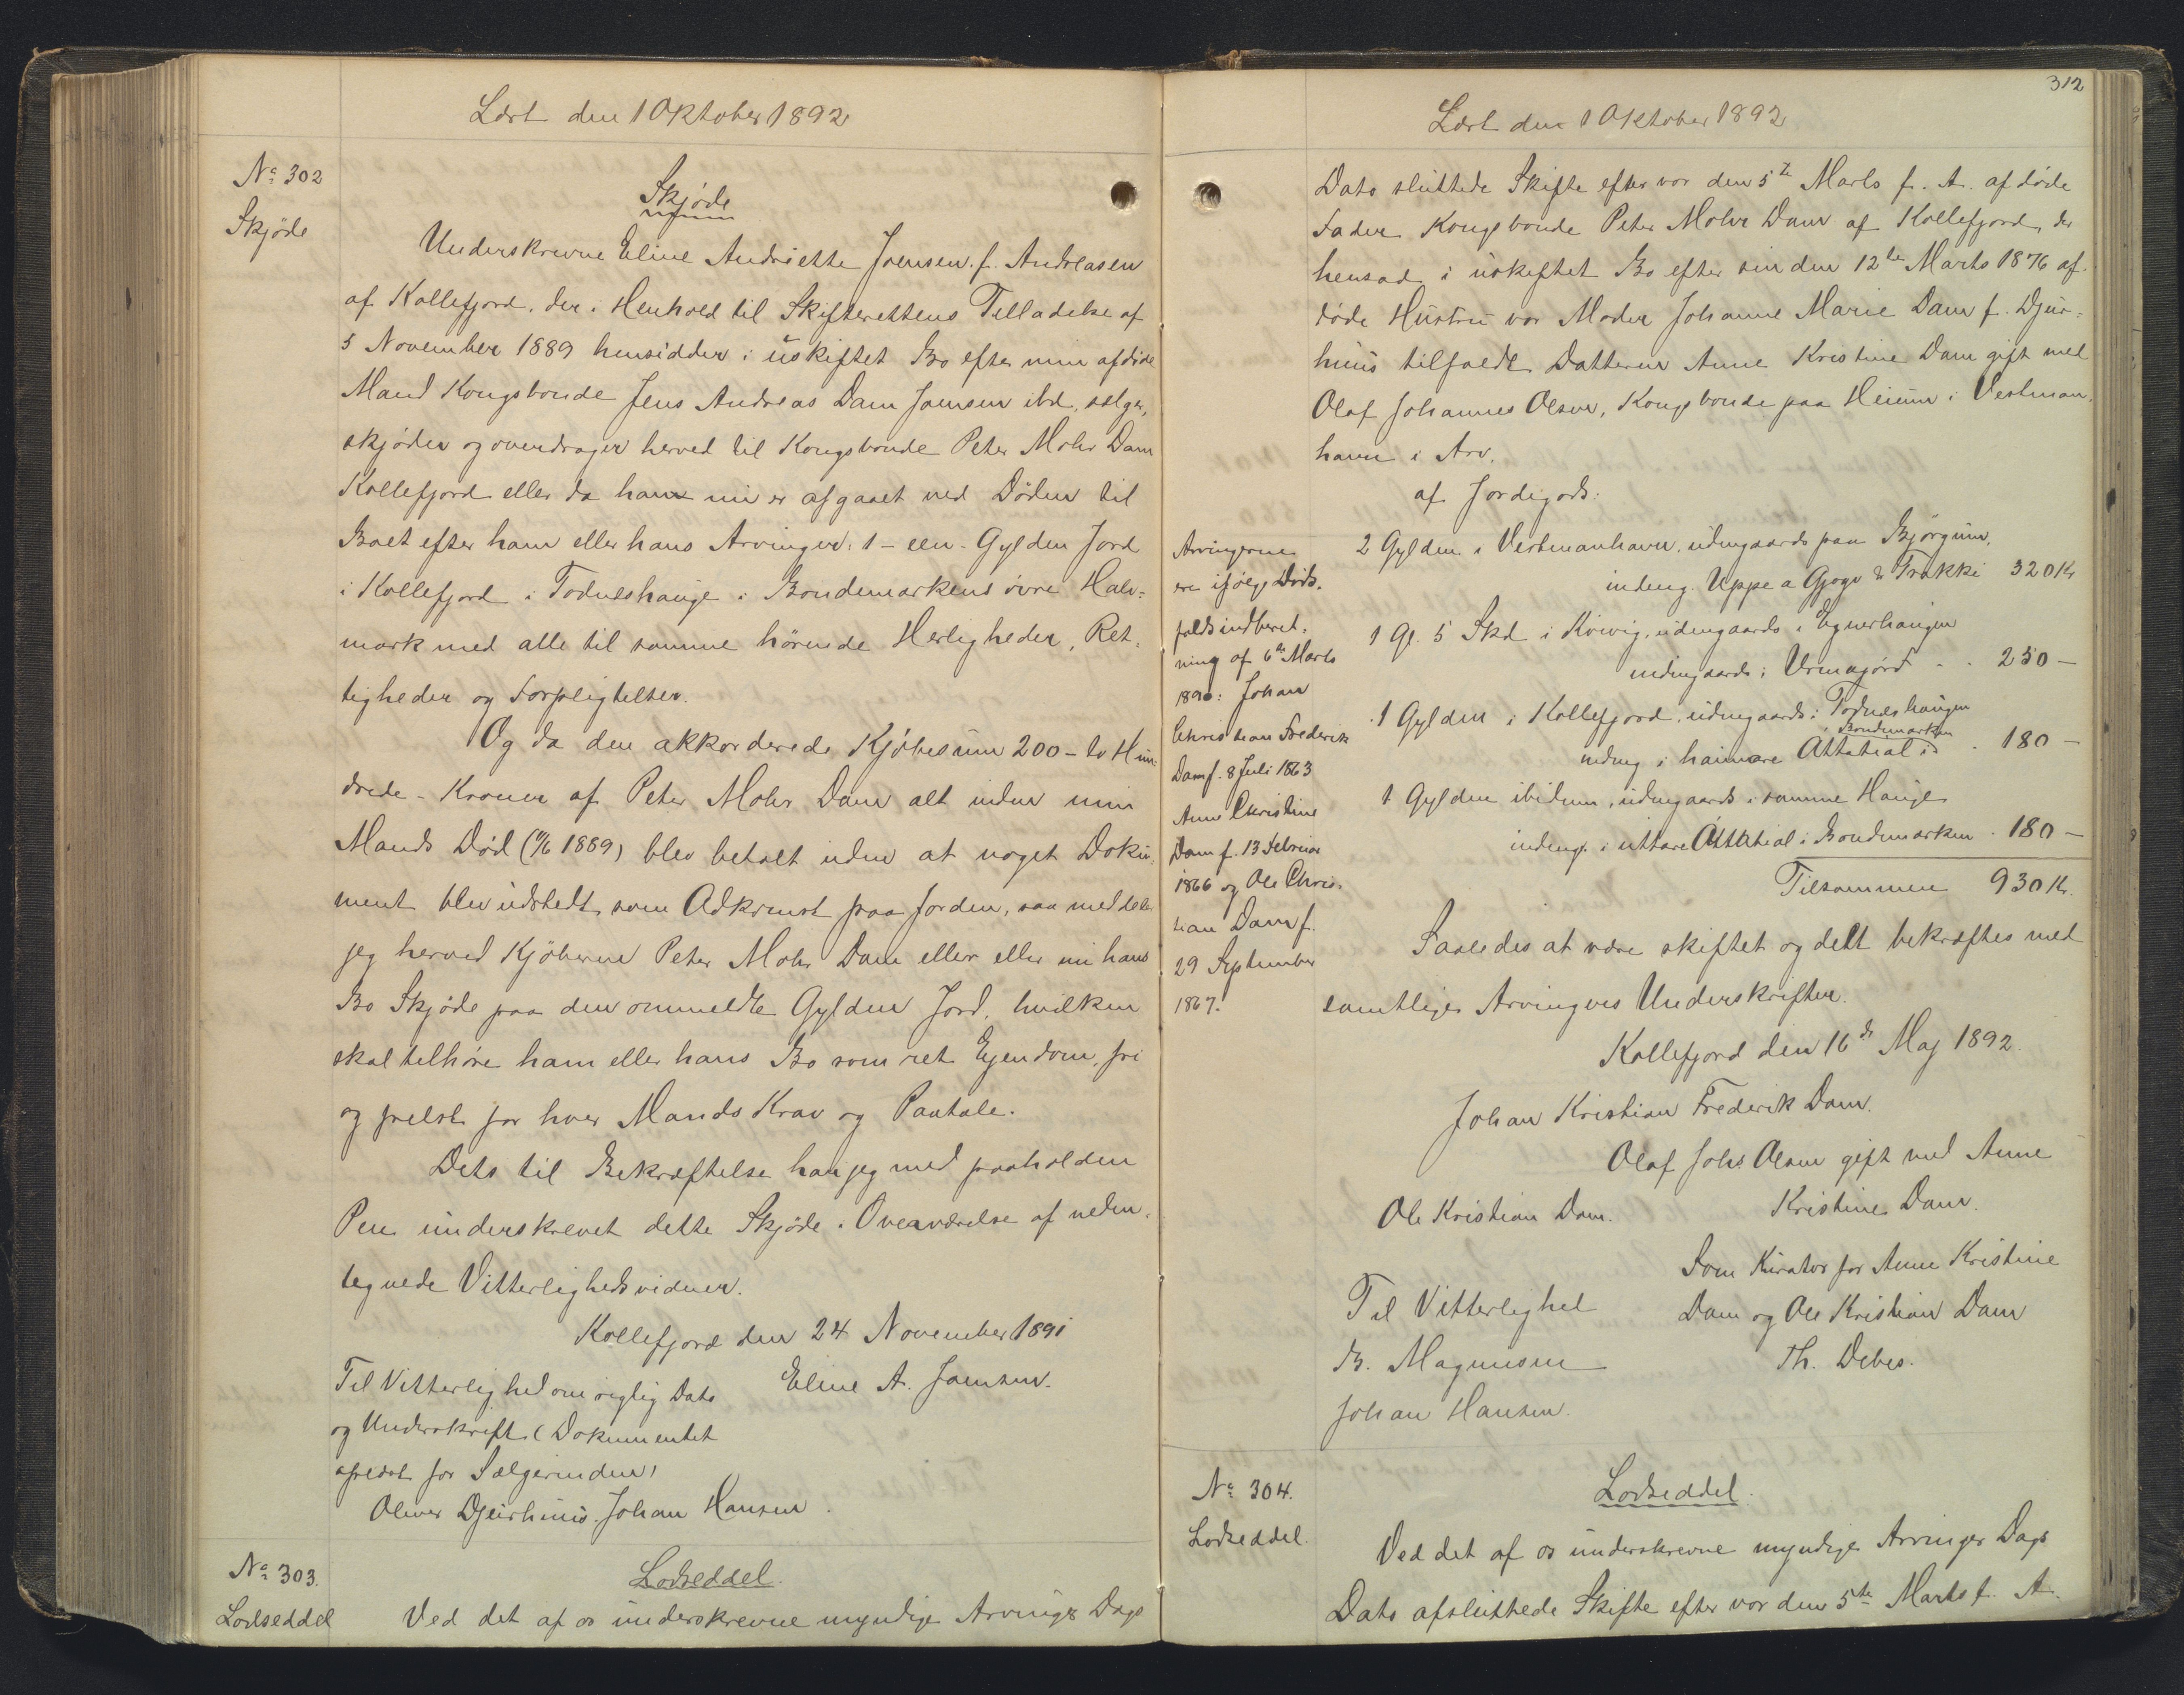 Læst den 1 Oktober 1892
No 302
Skjøde
Skjøde
Underskrevne Eline Andriette Joensen f. Andreasen
af Kollefjord, der i Henhold til Skifterettens Tilladelse af
5 November 1889 hensidder i uskiftet Bo efter min afdøde
Mand Kongsbonde Jens Andreas Dam Joensen ibd. sælger,
skjøder og overdrager herved til Kongsbonde Peter Mohr Dam
Kollefjord eller da han nu er afgaaet ved Døden til
Boet efter ham eller hans Arvinger: 1 - een - Gylden Jord
i Kollefjord i Todneshauge i Bondemarkens övre Halv=
mark med alle til samme hørende Herligheder, Ret=
tigheder og Forpligtelser.
Og da den akkorderede Kjøbesum 200 - to Hun=
drede - Kroner af Peter Mohr Dam alt inden min
Mands Død (1889) blev betalt uden at noget Doku=
ment blev udstedt som Adkomst paa Jorden, saa meddeler
jeg herved Kjøberen Peter Mohr Dam eller eller nu hans
Bo Skjøde paa den ommeldte Gylden Jord, hvilken
skal tilhøre ham eller hans Bo som ret Ejendom, fri
og frelst for hver Mands Krav og Paatale.
Dets til Bekræftelse har jeg med paaholden
Pen underskrevet dette Skjøde i Overværelse af neden=
tegnede Vitterlighedsvidner.
Kollefjord den 24 November 1891
Eline A. Joensen.
Til Vitterlighed om rigtig Dato
og Underskrift (Dokumentet
oplæst for Sælgerinden)
Oliver Djurhuus. Johan Hansen.
No 303.
Lodseddel
Lodseddel.
Ved det af os underskrevne myndige Arvinger Dags
312
Læst den 1 Oktober 1892
Dato sluttede Skifte efter vor den 5te Marts f. A. afdøde
Fader Kongsbonde Peter Mohr Dam af Kollefjord, der
hensad i uskiftet Bo efter sin den 12te Marts 1876 af=
døde Hustru vor Moder Johanne Marie Dam f. Djur=
huus tilfaldt Datteren Anne Kristine Dam gift med
Olaf Johannes Olsen, Kongsbonde paa Heium i Vestman=
havn i Arv.
af Jordegods:
2 Gylden i Vestmanhavn, udengaards paa Bjørgum,
indeng. Uppe a Gjogv & Trakki 320 Kr
1 Gl. 5 Skd i Kvivig, udengaards i Egnerhaugen
indengaards i Urmagjørd . . 250 -
1 Gylden i Kollefjord, udengaards i Todneshaugen
indeng i haimare Attatial i Bondemarken . 180 -
1 Gylden ibidem, udengaards i samme Hauge
indeng. i uttare Attatial i Bondemarken . 180 -
Tilsammen 930 Kr.
Arvingerne
ere ifølge Døds=
faldsindberet=
ning af 6te Marts
1890: Johan
Christian Frederik
Dam f. 8 Juli 1863
Anne Christine
Dam f. 13 Februar
1866 og Ole Chris=
tian Dam f.
29 September
1867.
Saaledes at være skiftet og delt bekræftes med
samtlige Arvingers Underskrifter.
Kollefjord den 16de Maj 1892.
Johan Kristian Frederik Dam.
Olaf Johs Olsen gift med Anne
Kristine Dam.
Ole Kristian Dam.
Som Kurator for Anne Kristine
Dam og Ole Kristian Dam
Th. Debes.
Til Vitterlighed
B. Magnusen
Johan Hansen.
No 304.
Lodseddel.
Lodseddel.
Ved det af os underskrevne myndige Arvinger Dags
Dato afsluttede Skifte efter vor den 5te Marts f. A.